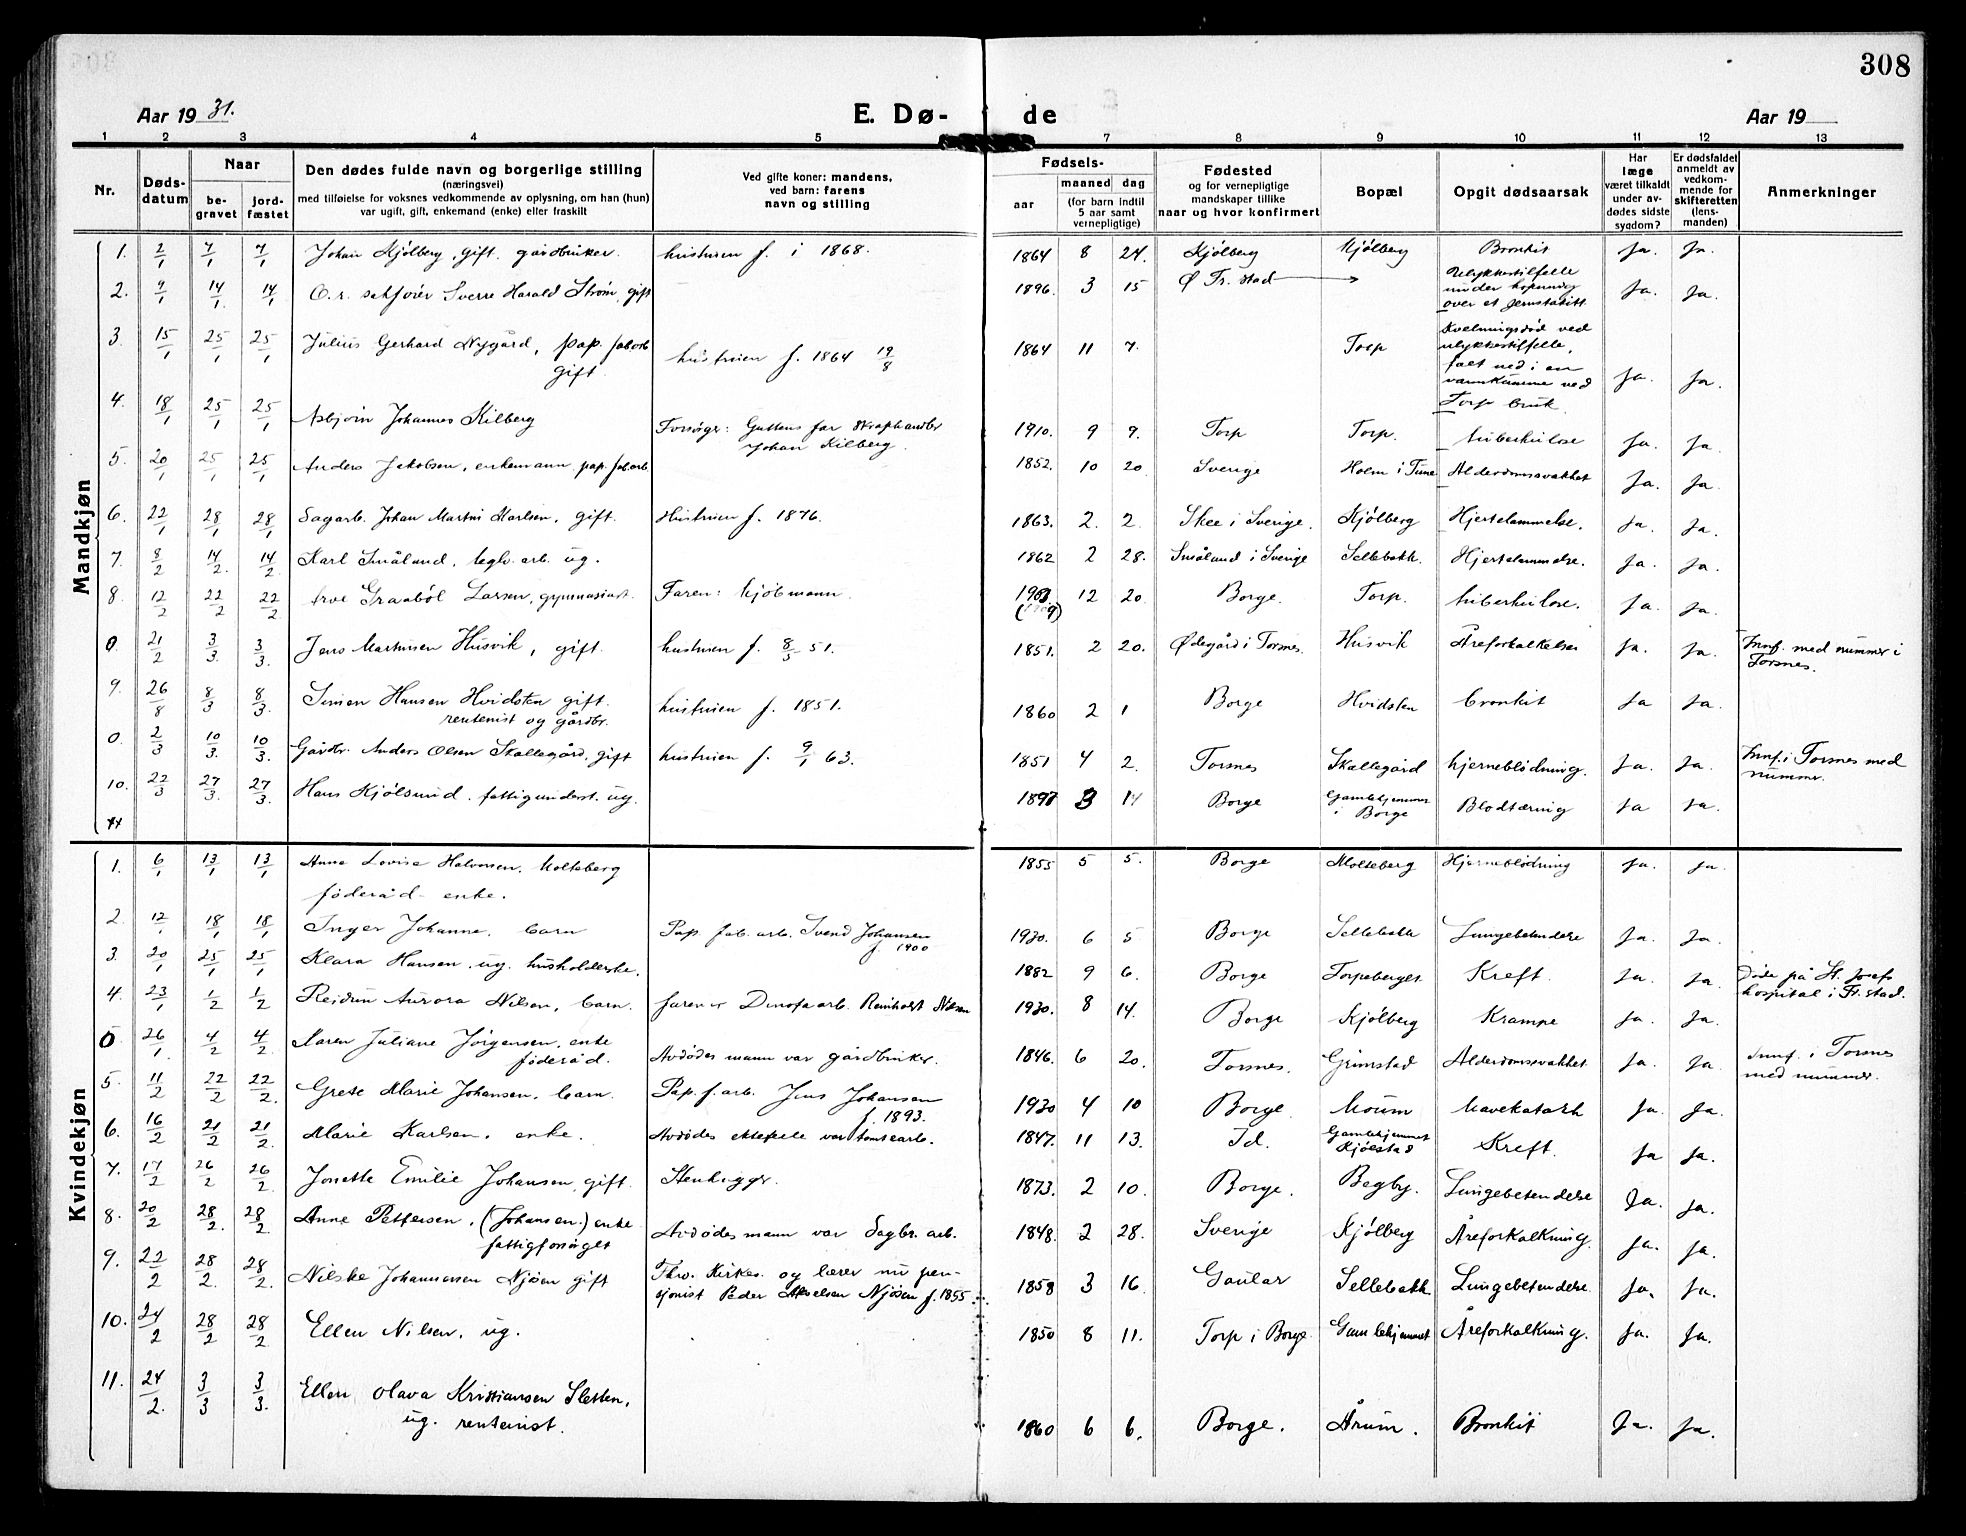 308
Aar 19 31.
E. Dø- de
Aar 19
1 2 3 4 5 7 8 9 10 11 12 13
Nr.
Døds-
datum
Naar
be-
gravet
jord-
fæstet
Den dødes fulde navn og borgerlige stilling
(næringsvei)
med tilføielse for voksnes vedkommende av oplysning, om han (hun)
var ugift, gift, enkemand (enke) eller fraskilt
Ved gifte koner: mandens,
ved barn: farens
navn og stilling
Fødsels-
aar
maaned dag
(for barn indtil
5 aar samt
vernepligtige)
Fødested
og for vernepligtige
mandskaper tillike
naar og hvor konfirmert
Bopæl
Opgit dødsaarsak
Har
læge
været tilkaldt
under av-
dødes sidste
sygdom?
Er dødsfaldet
anmeldt av
vedkom-
mende for
skifteretten
(lens-
manden)
Anmerkninger
Mandkjøn
1. 2/1 7/1 7/1 Johan Kjølberg, gift. gårdbruker. hustruen f. i 1868. 1864 8 24. Kjølberg Kjølberg Bronkit Ja. Ja.
2. 9/1 14/1 14/1 O.r. sakfører Sverre Harald Strøm, gift 1896. 3 15 Ø Fr.stad Ulykkestilfelle
under hopning
over et jernstakitt Ja. Ja.
3. 15/1 25/1 25/1 Julius Gerhard Nygård, pap. fabarb
gift. hustruen f. 1864 19/8 1864 11 7. Torp Kvelningsdød ved
ulykkestilfelle,
falt ned i en
vannkumme ved
Torp bruk. Ja. Ja.
4. 18/1 25/1 25/1 Asbjørn Johannes Kilberg Forsørger: Guttens far Skraphandler
Johan Kilberg. 1910. 9 9. Torp Torp. tuberkulose Ja. Ja.
5. 20/1 25/1 25/1 Anders Jakobsen, enkemann pap. fabarb. 1852. 10 20. Sverige Holm i Tune Alderdomssvakhet Ja. Ja.
6. 22/1 28/1 28/1 Sagarb. Johan Martni Karlsen, gift. Hustruen f. 1876. 1863. 2. 2. Skee i Sverige. Kjølberg Hjertelammelse. Ja. Ja.
7. 8/2 14/2. 14/2. Karl Småland, teglv. arb. ug. 1862 2 28. Småland i Sverige Sellebakk. Hjertelammelse. Ja. Ja.
8. 12/2 22/2 22/2 Arve Graabøl Larsen, gymnasiast. Faren: kjøbmann. 12 20. Borge. Torp. tuberkulose. Ja. Ja.
0 21/2 3/3. 3/3. Jens Martinsen Husvik, gift. hustruen f. 8/5 51. 1851. 2 20. Ødegård i Torsnes. Husvik Åreforkalkelse Ja. Ja. Innf. med nummer i
Torsnes.
9. 26/8 8/3 8/3. Simen Hansen Hvidsten gift.
rentenist og gårdbr. hustruen f. 1851. 1860 2 1 Borge Hvidsten bronkit Ja Ja.
0. 2/3 10/3. 10/3. Gårdbr. Anders Olsen Skallegård, gift hustruen f. 9/1 63. 1851 4 2. Torsnes Skallegård hjerneblødning. Ja. Ja. Innf. i Torsnes med
nummer.
10. 22/3 27/3. 27/3. Hans Kjølsund. fattigunderst. ug. 1897 3 14 Borge Gamlehjemmet
i Borge Blodtæring Ja Ja.
11
Kvindekjøn
1. 6/1 13/1 13/1 Anna Lovise Halvorsen. Molteberg
føderåd- enke. 1855 5 5. Borge Molteberg Hjerneblødning Ja. Ja.
2. 12/1 18/1 18/1 Inger Johanne. barn Pap. fab. arb. Svend Johansen
f. 1900 1930. 6 5 Borge Sellebakk Lungebetendelse Ja. Ja.
3. 20/1 25/1 25/1 Klara Hansen. ug. husholderske. 1882 9 6. Borge Torpeberget Kreft. Ja. Ja. Døde på St. Josefs
hospital i Fr.stad.
4. 23/1 1/2 1/2 Reidun Aurora Nilsen, barn. faren er Denofaarb. Reinholdt Nilsen 1930. 8 14. Borge Kjølberg Krampe Ja. Ja.
0 26/1 4/2 4/2 Karen Juliane Jørgensen. enke
føderåd. Avdødes mann var gårdbruker. 1846. 6 20. Torsnes. Grimstad Alderdomssvakhet Ja. Ja. Innf. i Torsnes
med nummer.
5. 11/2 22/2 22/2 Grete Marie Johansen. barn. Pap. f. arb. Jens Johansen
f. 1893. 1930 4 10 Borge Moum Mavekatarh Ja. Ja.
6. 16/2 21/2 21/2. Marie Karlsen. enke. Avdødes ektefelle var tomtearb. 1847. 11 13. Id. Gamlehjemmet
Kjølstad Kreft. Ja Ja.
7. 17/2 26/2 26/2 Jonette Emilie Johansen, gift. Stenhugger. 1873. 2 10. Borge. Begby. Lungebetendelse Ja. Ja.
8. 20/2 28/2. 28/2 Anne Pettersen. (Johansen.) enke
fattigforsørget Avdødes mann var Sagbr. arb. 1848. 2 28. Sverige Kjølberg Åreforkalkning. Ja. Ja.
9. 22/2 28/2. 28/2. Nilske Johannesen Njøsen gift Fhv. Kirkes. og lærer nu pen-
sjonist Peder Akselsen Njøsen f. 1855. 1858 3 16. Gaular Sellebakk Lungebetendelse Ja. Ja.
10. 24/2 28/2 28/2 Ellen Nilsen. ug. 1850 8 11. Torp i Borge Gamlehjemmet Åreforkalkning. Ja. Ja.
11. 24/2. 3/3 3/3. Ellen Olava Kristiansen Sletten.
ug. rentenist. 1860 6 6. Borge. Årum. Bronkit Ja. Ja.